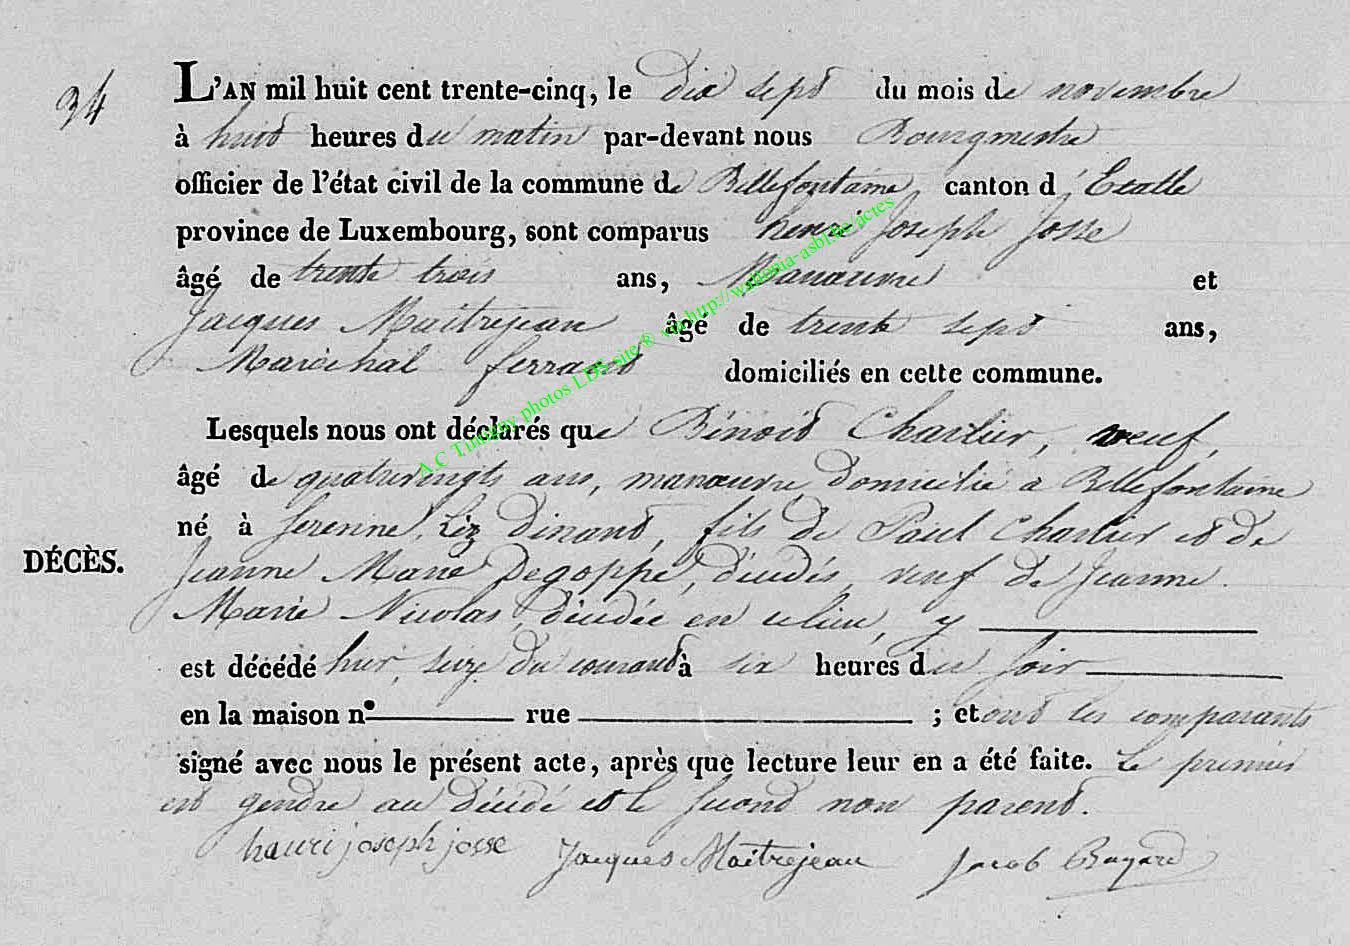 34
L'AN mil huit cent trente-cinq, le dix sept du mois de novembre
à huit heures du matin par-devant nous Bourgmestre
officier de l'état civil de la commune de Bellefontaine, canton d'Etalle
province de Luxembourg, sont comparus henri Joseph Josse
âgé de trente trois ans, Manœuvre et
Jacques Maitrejean âgé de trente sept ans,
Maréchal ferrant domiciliés en cette commune.
Lesquels nous ont déclarés que Bénoit Charlier, veuf,
âgé de quatrevingts ans, manœuvre, domicilié à Bellefontaine
né à Serenne, Lez Dinant, fils de Paul Charlier et de
Jeanne Marie Degoppe, décédés, veuf de Jeanne
Marie Nicolas, décédée en ce lieu, y
DÉCÈS.
est décédé hier, seize du courant à six heures du soir
en la maison n° rue ; et ont les comparants
signé avec nous le présent acte, après que lecture leur en a été faite. Le premier
est gendre au décédé et le second non parent.
hanri joseph josse Jacques Maîtrejean Jacob Bayard
A.C Tintigny photos LDS site ® via http://wallonia-asbl.be/actes